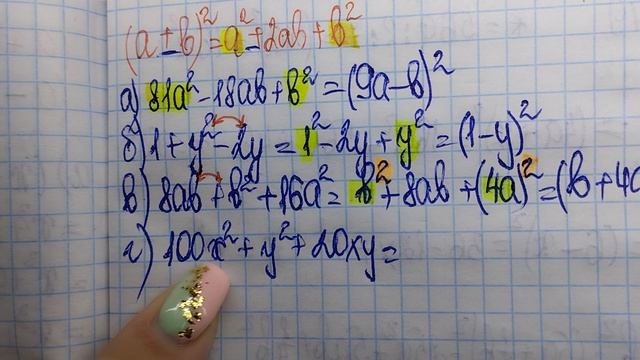 (a ± b)² = a² ± 2ab + b²
а) 81a² - 18ab + b² = (9a - b)²
б) 1 + y² - 2y = 1² - 2y + y² = (1 - y)²
в) 8ab + b² + 16a² = b² + 8ab + (4a)² = (b + 4a
г) 100x² + y² + 20xy =